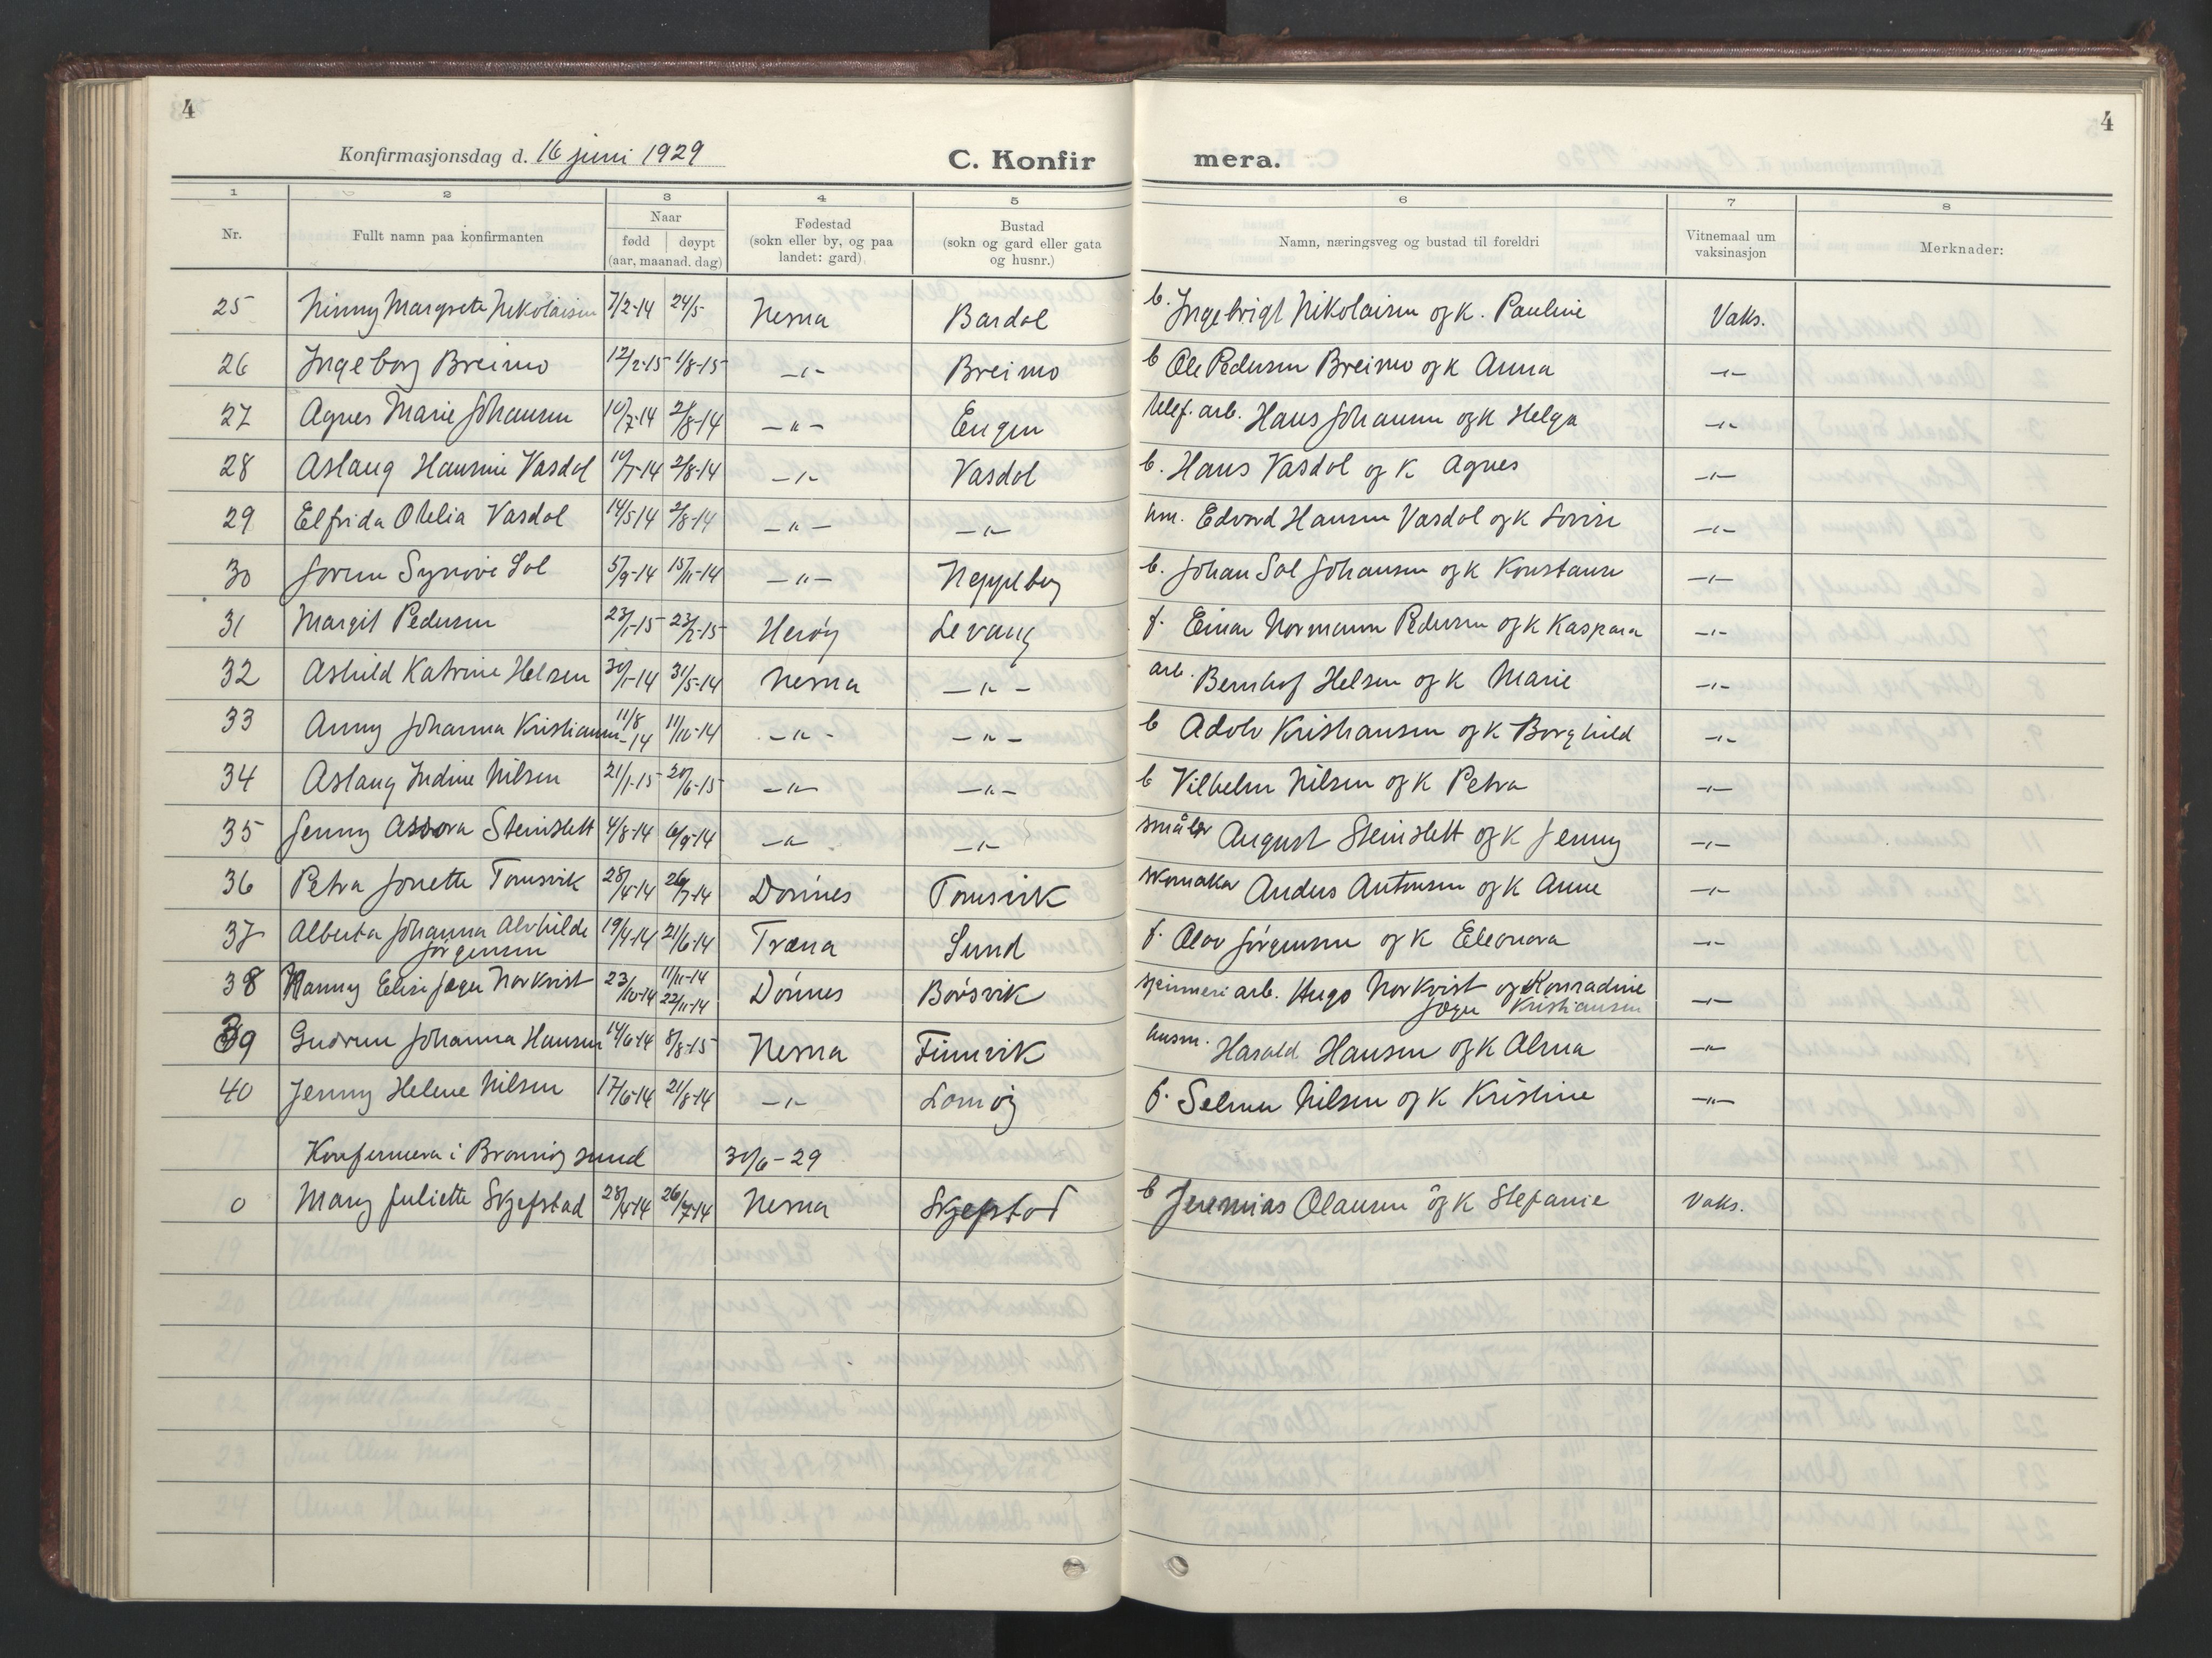 4
4
Konfirmasjonsdag d. 16 juni 1929
C. Konfir
mera.
1 2 3 4 5 6 7 8
Nr.
Fullt namn paa konfirmanten
Naar
fødd døypt
(aar, maanad. dag)
Fødestad
(sokn eller by, og paa
landet: gard)
Bustad
(sokn og gard eller gata
og husnr.)
Namn, næringsveg og bustad til foreldri
Vitnemaal um
vaksinasjon
Merknader:
25 Ninny Margrete Nikolaisen 7/2-14 24/5- Nesna Bardal b. Ingebrigt Nikolaisen og k. Pauline Vaks.
26 Ingeborg Breimo 12/2-15 1/8-15 -"- Breimo b Ole Pedersen Breimo og k Anna -"-
27 Agnes Marie Johansen 10/7-14 2/8-14 -"- Engen telef. arb. Hans Johansen og k Helga -"-
28 Aslaug Hansine Vasdal 10/7-14 2/8-14 -"- Vasdal b. Hans Vasdal og k Agnes -"-
29 Elfrida Otelia Vasdal 14/5 14 2/8-14 -"- -"- hm. Edvard Hansen Vasdal og k Lovise -"-
30 Jorun Synøve Sol 5/9-14 15/11-14 -"- Neppelberg b. Johan Sol Johansen og k Konstanse -"-
31 Margit Pedersen 23/1-15 23/2-15 Herøy Levang f. Einar Normann Pedersen og k Kaspara -"-
32 Ashild Katrine Helsen 30/1-14 31/5-14 Nesna -"- arb. Bernhof Helsen og k Marie -"-
33 Anny Johanna Kristiansen 11/8 -14 11/10-14 -"- -"- b Adolv Kristiansen og k Borghild -"-
34 Aslaug Indine Nilsen 21/1-15 20/6-15 -"- -"- b Vilhelm Nilsen og k Petra -"-
35 Jenny Assora Steinslett 4/8-14 6/9-14 -"- -"- småbr August Steinslett og k Jenny -"-
36 Petra Jonette Tomsvik 28/4-14 26/7-14 Dønnes Tomsvik skomaker Anders Antonsen og k Anne -"-
37 Alberta Johanna Alvhilde 19/4-14 21/6-14 Træna Sund f. Olav Jørgensen og k Eleonora -"-
Jørgensen
38 Hanny Elise Jæger Norkvist 23/10-14 11/11-14 22/11-14 Dønnes Børsvik spinneri arb. Hugo Norkvist og Konradine -"-
Jæger Kristiansen
39 Gudrun Johanna Hansen 14/6-14 8/8-15 Nesna Finnvik husm. Harald Hansen og k Alma -"-
40 Jenny Helene Nilsen 17/6-14 21/8-14 -"- Lamøy f. Selmer Nilsen og k Kristine -"-
Konfirmera i Brønnøysund 30/6-29
0 Mary Juliette Skjefstad 28/4-14 26/7-14 Nesna Skjefstad b Jeremias Olausen og k Stefanie Vaks.